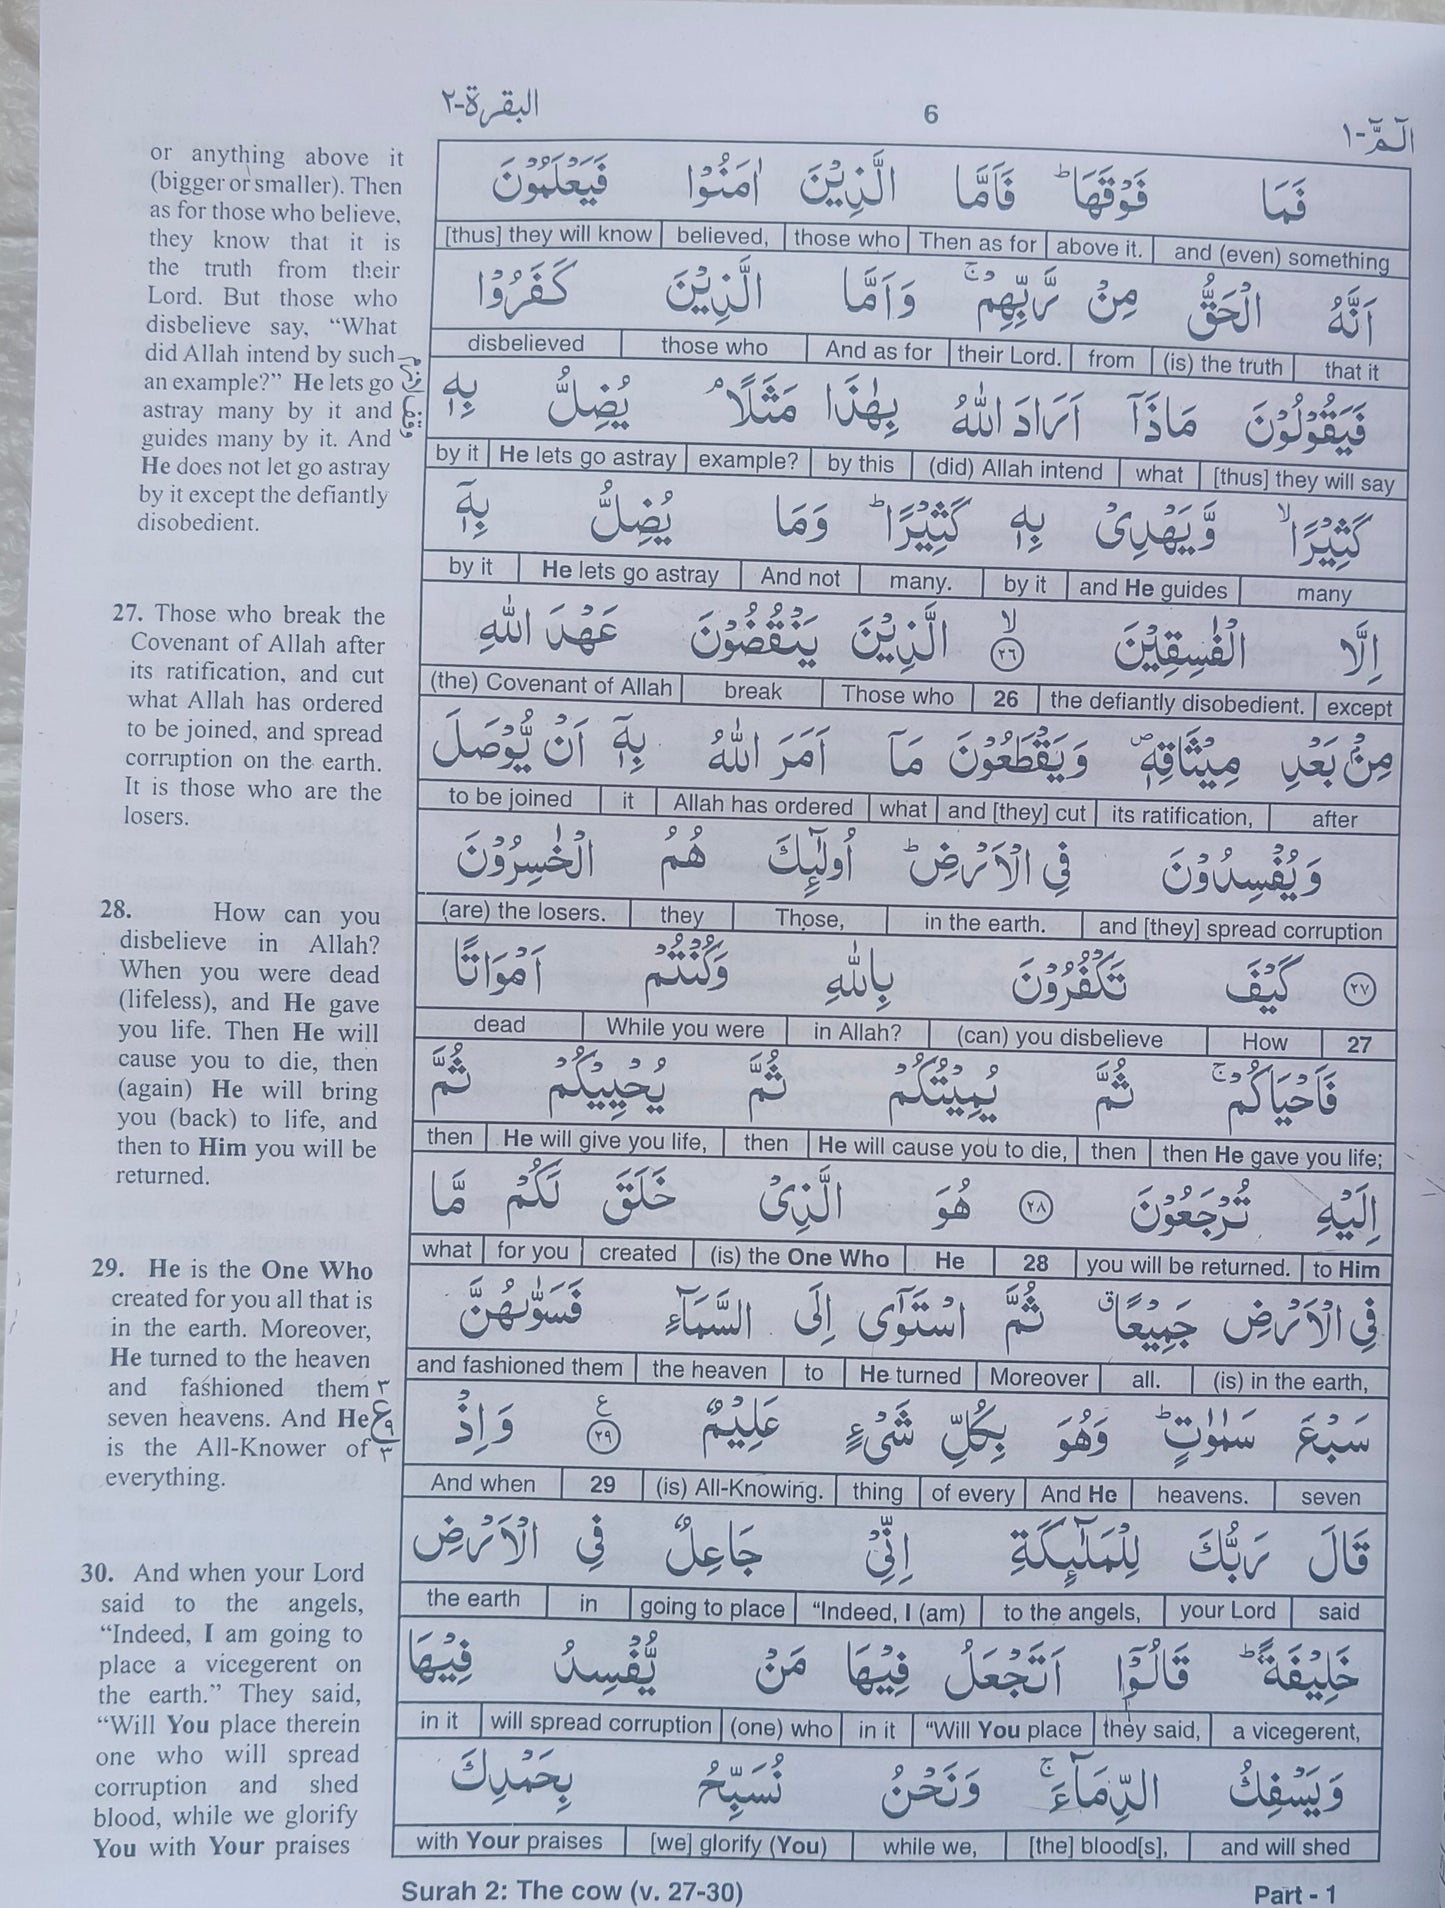 البقرة-٢
6
الٓمّٓ-١
or anything above it
(bigger or smaller). Then
as for those who believe,
they know that it is
the truth from their
Lord. But those who
disbelieve say, “What
did Allah intend by such
an example?” He lets go
astray many by it and
guides many by it. And
He does not let go astray
by it except the defiantly
disobedient.
27. Those who break the
Covenant of Allah after
its ratification, and cut
what Allah has ordered
to be joined, and spread
corruption on the earth.
It is those who are the
losers.
28. How can you
disbelieve in Allah?
When you were dead
(lifeless), and He gave
you life. Then He will
cause you to die, then
(again) He will bring
you (back) to life, and
then to Him you will be
returned.
29. He is the One Who
created for you all that is
in the earth. Moreover,
He turned to the heaven
and fashioned them
seven heavens. And He
is the All-Knower of
everything.
30. And when your Lord
said to the angels,
“Indeed, I am going to
place a vicegerent on
the earth.” They said,
“Will You place therein
one who will spread
corruption and shed
blood, while we glorify
You with Your praises
فَمَا فَوْقَهَا ؕ فَاَمَّا الَّذِيْنَ اٰمَنُوْا فَيَعْلَمُوْنَ
[thus] they will know believed, those who Then as for above it. and (even) something
اَنَّهُ الْحَقُّ مِنْ رَّبِّهِمْ ۚ وَاَمَّا الَّذِيْنَ كَفَرُوْا
disbelieved those who And as for their Lord. from (is) the truth that it
فَيَقُوْلُوْنَ مَاذَاۤ اَرَادَ اللّٰهُ بِهٰذَا مَثَلًا ۘ يُضِلُّ بِهٖ
by it He lets go astray example? by this (did) Allah intend what [thus] they will say
كَثِيْرًا ۙ وَّيَهْدِىْ بِهٖ كَثِيْرًا ؕ وَمَا يُضِلُّ بِهٖۤ
by it He lets go astray And not many. by it and He guides many
اِلَّا الْفٰسِقِيْنَ ۙ ٢٦ الَّذِيْنَ يَنْقُضُوْنَ عَهْدَ اللّٰهِ
(the) Covenant of Allah break Those who 26 the defiantly disobedient. except
مِنْۢ بَعْدِ مِيْثَاقِهٖ ۪ وَيَقْطَعُوْنَ مَاۤ اَمَرَ اللّٰهُ بِهٖۤ اَنْ يُّوْصَلَ
to be joined it Allah has ordered what and [they] cut its ratification, after
وَيُفْسِدُوْنَ فِى الْاَرْضِ ؕ اُولٰٓئِكَ هُمُ الْخٰسِرُوْنَ
(are) the losers. they Those, in the earth. and [they] spread corruption
٢٧ كَيْفَ تَكْفُرُوْنَ بِاللّٰهِ وَكُنْتُمْ اَمْوَاتًا
dead While you were in Allah? (can) you disbelieve How 27
فَاَحْيَاكُمْ ۚ ثُمَّ يُمِيْتُكُمْ ثُمَّ يُحْيِيْكُمْ ثُمَّ
then He will give you life, then He will cause you to die, then then He gave you life;
اِلَيْهِ تُرْجَعُوْنَ ٢٨ هُوَ الَّذِىْ خَلَقَ لَكُمْ مَّا
what for you created (is) the One Who He 28 you will be returned. to Him
فِى الْاَرْضِ جَمِيْعًا ۗ ثُمَّ اسْتَوٰۤى اِلَى السَّمَآءِ فَسَوّٰىهُنَّ
and fashioned them the heaven to He turned Moreover all. (is) in the earth,
سَبْعَ سَمٰوٰتٍ ؕ وَهُوَ بِكُلِّ شَىْءٍ عَلِيْمٌ ٢٩ وَاِذْ
And when 29 (is) All-Knowing. thing of every And He heavens. seven
قَالَ رَبُّكَ لِلْمَلٰٓئِكَةِ اِنِّىْ جَاعِلٌ فِى الْاَرْضِ
the earth in going to place “Indeed, I (am) to the angels, your Lord said
خَلِيْفَةً ؕ قَالُوْۤا اَتَجْعَلُ فِيْهَا مَنْ يُّفْسِدُ فِيْهَا
in it will spread corruption (one) who in it “Will You place they said, a vicegerent,
وَيَسْفِكُ الدِّمَآءَ ۚ وَنَحْنُ نُسَبِّحُ بِحَمْدِكَ
with Your praises [we] glorify (You) while we, [the] blood[s], and will shed
Surah 2: The cow (v. 27-30)
Part - 1